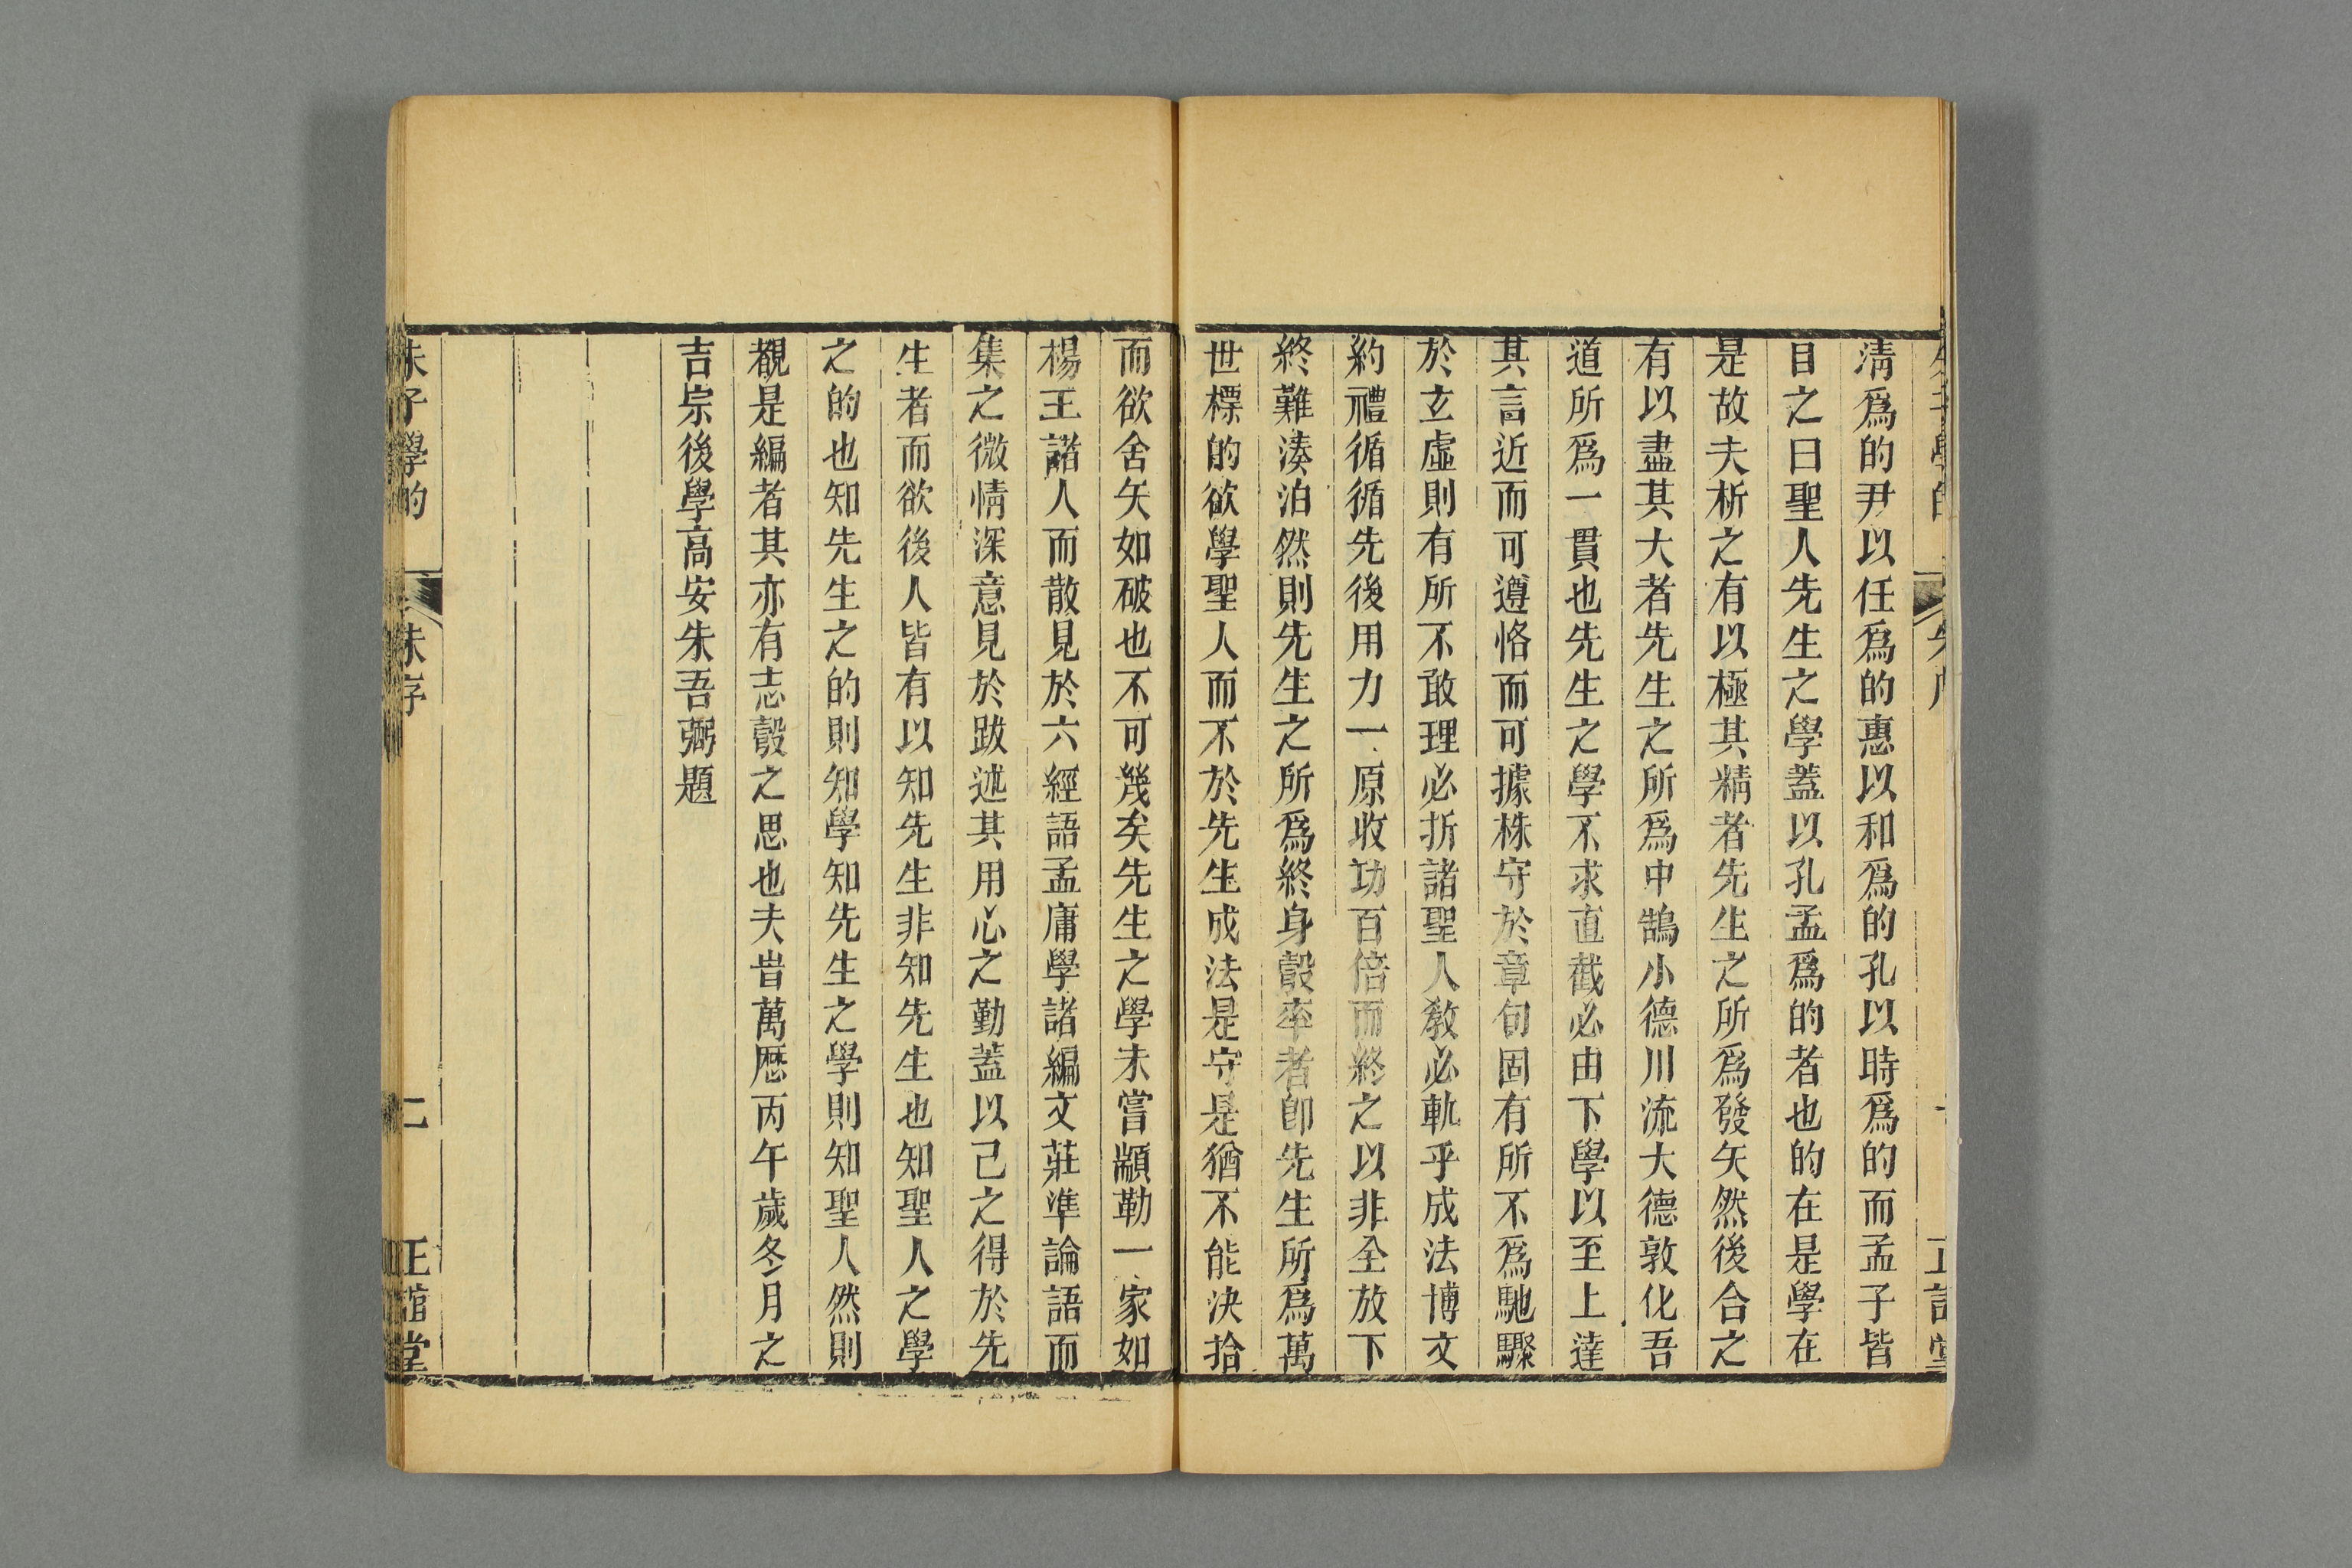 清爲的尹以任爲的惠以和爲的孔以時爲的而孟子皆
目之曰聖人先生之學蓋以孔孟爲的者也的在是學在
是故夫析之有以極其精者先生之所爲發矢然後合之
有以盡其大者先生之所爲中鵠小德川流大德敦化吾
道所爲一貫也先生之學不求直截必由下學以至上達
其言近而可遵恪而可據株守於章句固有所不爲馳驟
於玄虛則有所不敢理必折諸聖人敎必軌乎成法博文
約禮循循先後用力一原收功百倍而終之以非全放下
終難湊泊然則先生之所爲終身彀率者卽先生所爲萬
世標的欲學聖人而不於先生成法是守是猶不能決拾
而欲舍矢如破也不可幾矣先生之學未嘗顓勒一家如
楊王諸人而散見於六經語孟庸學諸編文莊準論語而
集之微情深意見於跋述其用心之勤蓋以己之得於先
生者而欲後人皆有以知先生非知先生也知聖人之學
之的也知先生之的則知學知先生之學則知聖人然則
覩是編者其亦有志彀之思也夫旹萬歷丙午歲冬月之
吉宗後學高安朱吾弼題
朱子學的
朱序
二
正誼堂